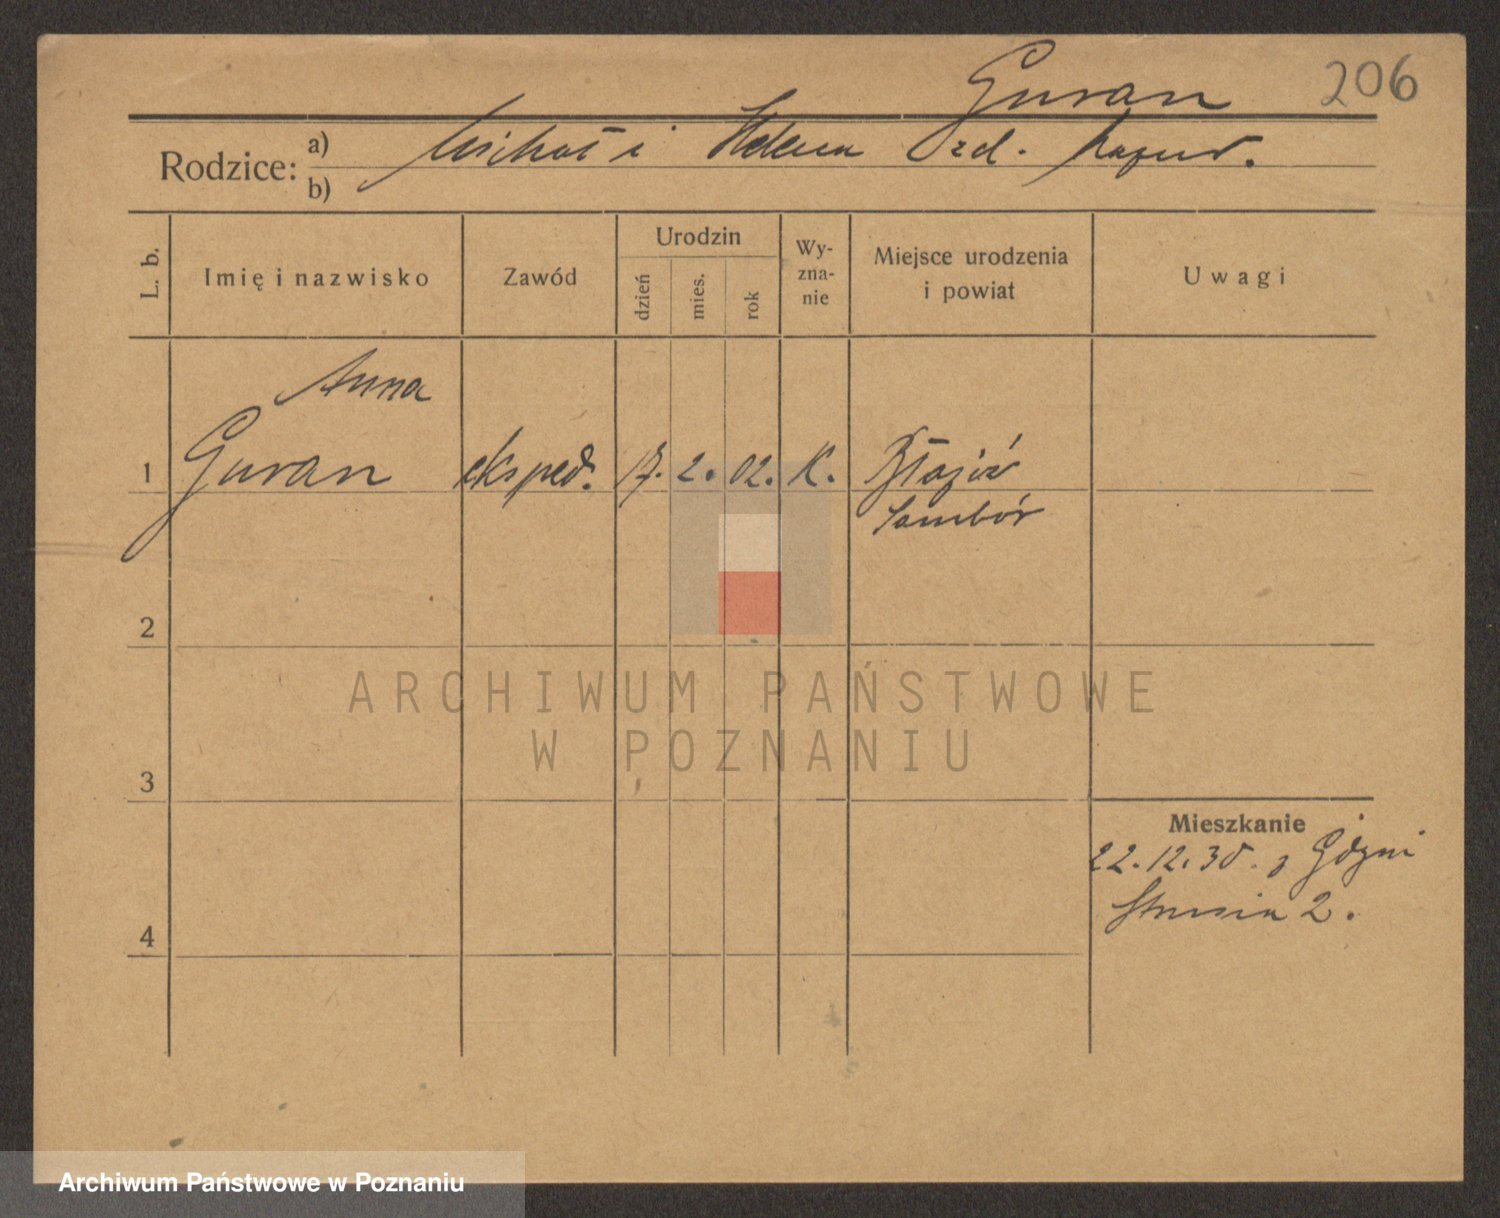 Guran 206
Rodzice: a) Michał i Helena zd.
b)
L. b. Imię i nazwisko Zawód Urodzin dzień mies. rok Wy-zna-nie Miejsce urodzenia i powiat Uwagi
Anna
1 Guran eksped. 17. 2. 02. K.
Sambór
2
ARCHIWUM PAŃSTWOWE
W POZNANIU
3
Mieszkanie
22.12.30. z Gdyni
Strusia 2.
4
Archiwum Państwowe w Poznaniu